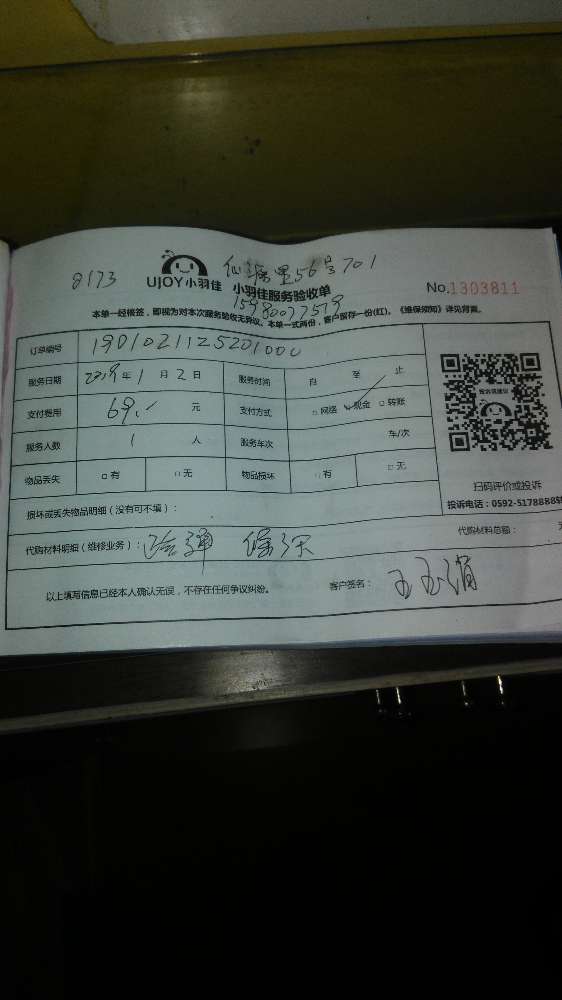 8173
仙源里56号701
UJOY小羽佳 小羽佳服务验收单
15980077579
No.1303811
本单一经帐签，即视为对本次服务验收无异议。本单一式两份，客户留存一份(红)。《维保须知》详见背面。
订单编号 1901021125201000
服务日期 2019年1月2日 服务时间 自 至 止
支付费用 69.- 元 支付方式 □网络 ☑现金 □转账
服务人数 1 人 服务车次 车/次
物品丢失 □有 □无 物品损坏 □有 □无
扫码评价或投诉
投诉电话：0592-5178888
损坏或丢失物品明细（没有可不填）：
代购材料明细（维修业务）： 代购材料总额：
以上填写信息已经本人确认无误，不存在任何争议纠纷。 客户签名：